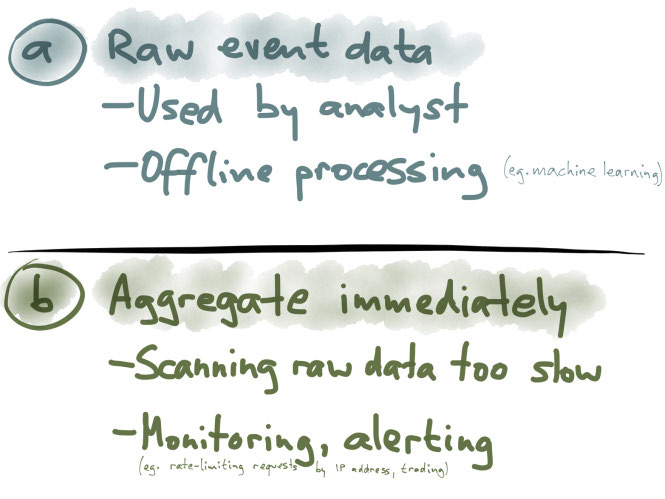 a Raw event data
-Used by analyst
-Offline processing (eg. machine learning)
b Aggregate immediately
-Scanning raw data too slow
-Monitoring, alerting
(eg. rate-limiting requests by IP address, trading)